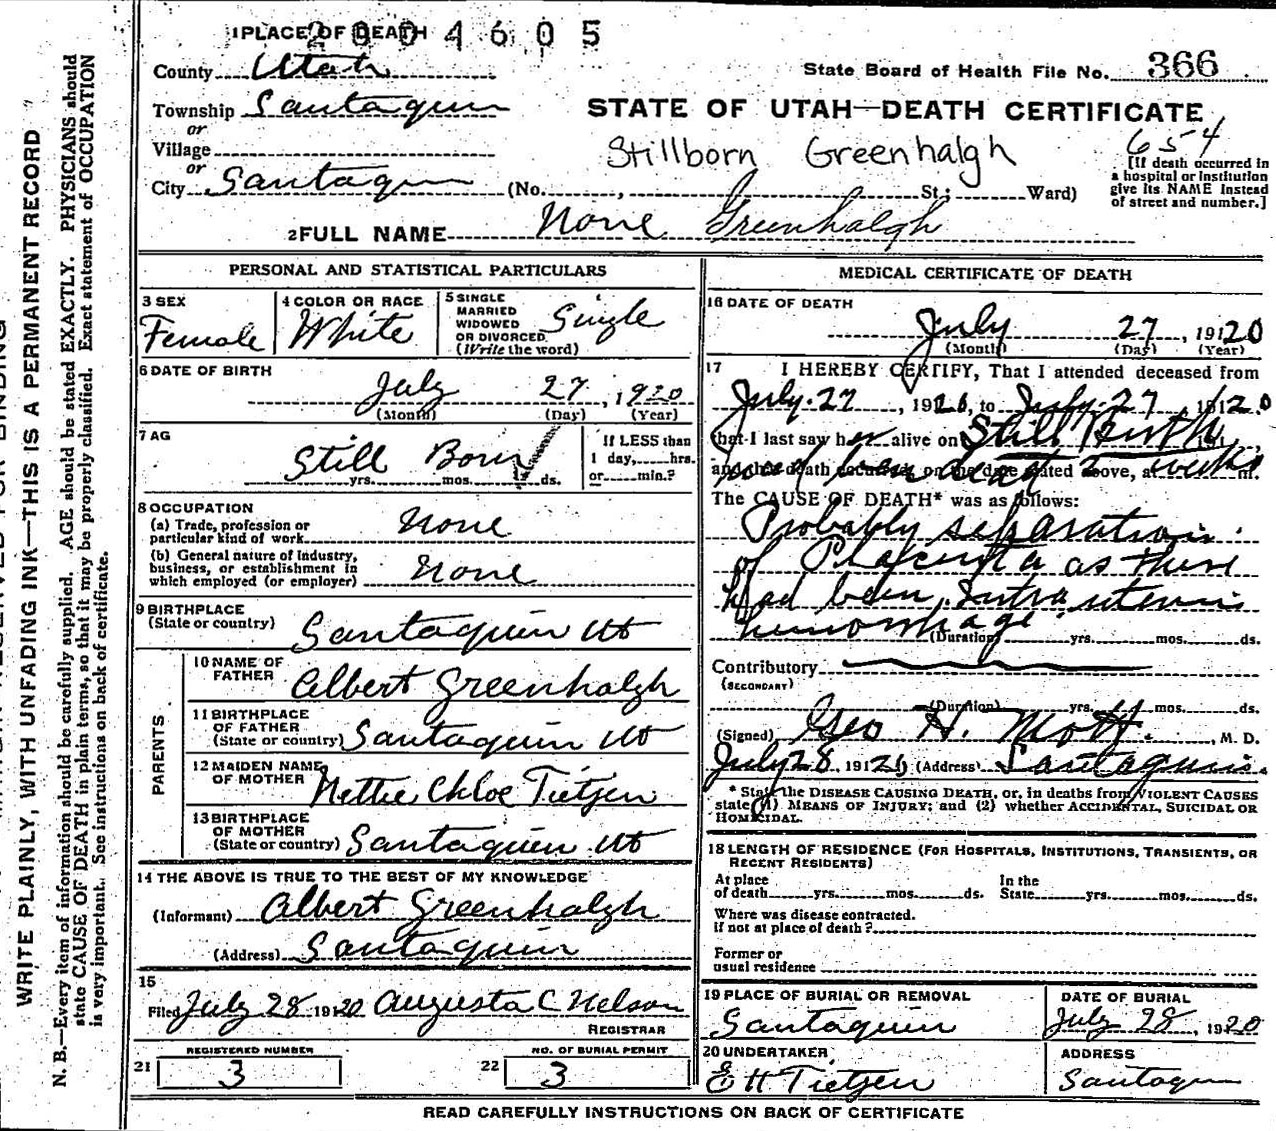 2004605
1 PLACE OF DEATH
County Utah
State Board of Health File No. 366
Township Santaquin
STATE OF UTAH—DEATH CERTIFICATE
or
Village
Stillborn Greenhalgh
654
or
City Santaquin (No. , St; Ward)
[If death occurred in
a hospital or institution
give its NAME instead
of street and number.]
2 FULL NAME None Greenhalgh
PERSONAL AND STATISTICAL PARTICULARS
3 SEX
Female
4 COLOR OR RACE
White
5 SINGLE
MARRIED
WIDOWED
OR DIVORCED
(Write the word)
Single
6 DATE OF BIRTH
July 27, 1920
(Month) (Day) (Year)
7 AG
Still Born
yrs. mos. ds.
If LESS than
1 day, hrs.
or min.?
8 OCCUPATION
(a) Trade, profession or
particular kind of work None
(b) General nature of Industry,
business, or establishment in
which employed (or employer) None
9 BIRTHPLACE
(State or country) Santaquin Ut
PARENTS
10 NAME OF
FATHER Albert Greenhalgh
11 BIRTHPLACE
OF FATHER
(State or country) Santaquin Ut
12 MAIDEN NAME
OF MOTHER Nettie Chloe Tietjen
13 BIRTHPLACE
OF MOTHER
(State or country) Santaquin Ut
14 THE ABOVE IS TRUE TO THE BEST OF MY KNOWLEDGE
(Informant) Albert Greenhalgh
(Address) Santaquin
15
Filed July 28 1920 Augusta C Nelson
REGISTRAR
21 REGISTERED NUMBER
3
22 NO. OF BURIAL PERMIT
3
MEDICAL CERTIFICATE OF DEATH
16 DATE OF DEATH
July 27, 19120
(Month) (Day) (Year)
17 I HEREBY CERTIFY, That I attended deceased from
July 27, 1920, to July 27, 19120
that I last saw her alive on Still Birth 191
and that death occurred, on the date stated above, at m.
been dead 2 weeks
The CAUSE OF DEATH* was as follows:
Probably separation
of Placenta as there
had been intra uterine
hemorrhage
(Duration) yrs. mos. ds.
Contributory
(SECONDARY)
(Duration) yrs. mos. ds.
(Signed) Geo H. Mott, M. D.
July 28, 19120 (Address) Santaquin.
* State the DISEASE CAUSING DEATH, or, in deaths from VIOLENT CAUSES
state (1) MEANS OF INJURY; and (2) whether ACCIDENTAL, SUICIDAL OR
HOMICIDAL.
18 LENGTH OF RESIDENCE (FOR HOSPITALS, INSTITUTIONS, TRANSIENTS, OR
RECENT RESIDENTS)
At place
of death yrs. mos. ds.
In the
State yrs. mos. ds.
Where was disease contracted.
if not at place of death?
Former or
usual residence
19 PLACE OF BURIAL OR REMOVAL
Santaquin
DATE OF BURIAL
July 28, 1920
20 UNDERTAKER
E H Tietjen
ADDRESS
Santaquin
READ CAREFULLY INSTRUCTIONS ON BACK OF CERTIFICATE
WRITE PLAINLY, WITH UNFADING INK—THIS IS A PERMANENT RECORD
N. B.—Every item of information should be carefully supplied. AGE should be stated EXACTLY. PHYSICIANS should
state CAUSE OF DEATH in plain terms, so that it may be properly classified. Exact statement of OCCUPATION
is very important. See instructions on back of certificate.